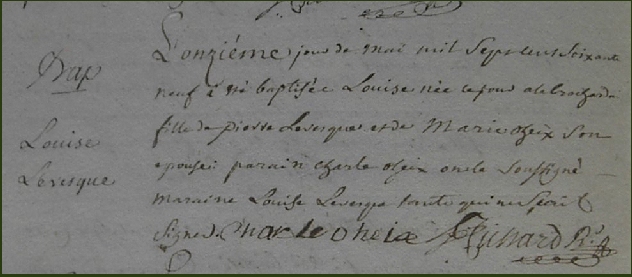 Bap
Louise
Levesque
L'onziéme jour de mai mil sept cent soixante
neuf a été baptisée Louise née ce jour a la brochard
fille de pierre Levesque et de Marie oheix son
epouse: parain charle oheix oncle soussigné
maraine Louise Levesque tante qui ne scait
signer. charle oheix